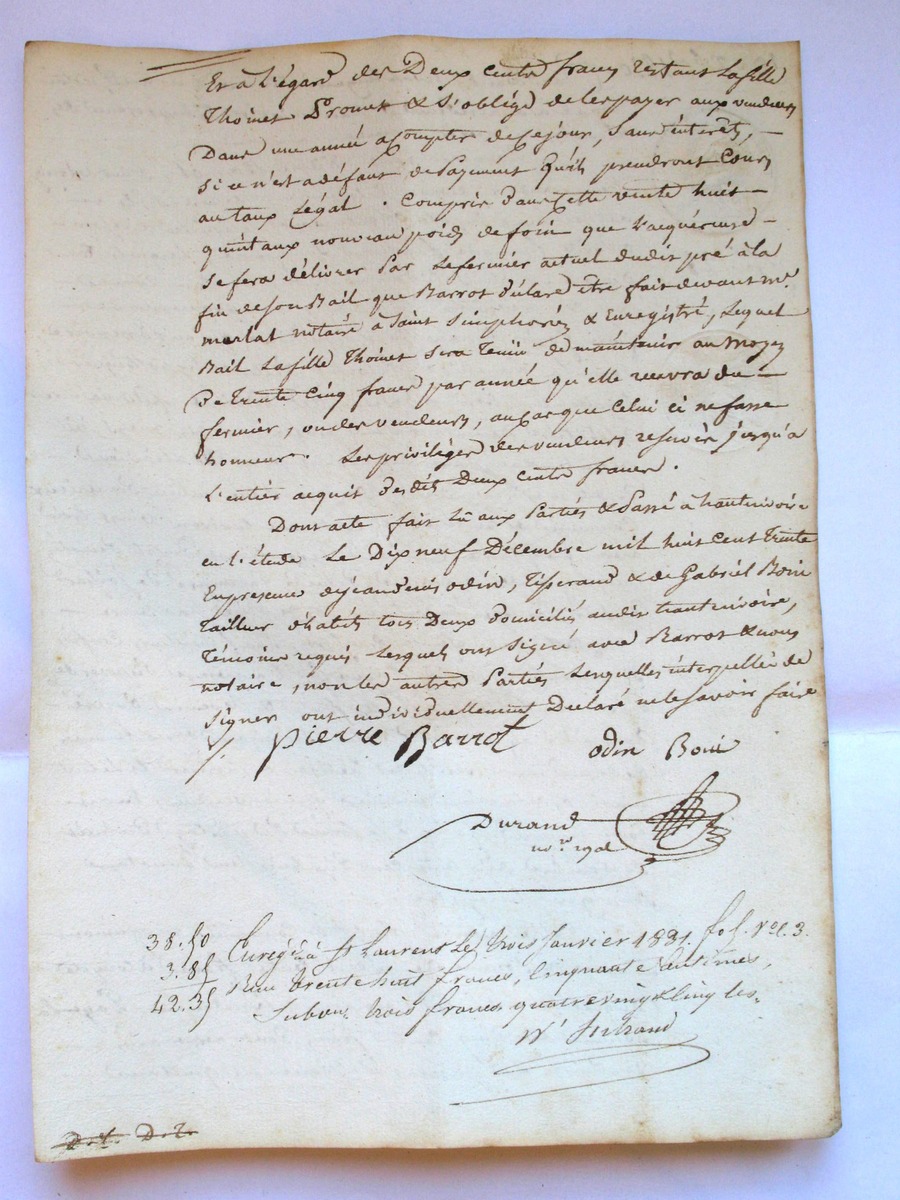 Et à l'égard des Deux cents francs restant la fille
Thoinet Promet & s'oblige de les payer aux vendeurs
Dans une année à compter de ce jour, sans intérêts, —
si ce n'est a défaut de Payement qu'ils prendront Cours
au taux Légal . Compris Dans Cette vente huit —
quintaux nouveau poids de foin que L'acquéreuse —
se fera délivrer Par Le fermier actuel dudit pré à la
fin de son Bail que Barrot Déclare être fait devant Me
merlat notaire à Saint Simphorien & Enregistré, Lequel
Bail La fille Thoinet sera Tenüe de maintenir au moyen
De trente Cinq francs par année qu'elle recevra du —
fermier, ou des vendeurs, au cas que Celui ci ne fasse
honneur. Les privilèges des vendeurs réservés jusqu'a
L'entier acquit Desdits Deux Cents francs.
Dont acte fait Lû aux Parties & Passé à hauterivoire
en l'étude Le Dix neuf Décembre mil huit Cent Trente
En presence de jean denis odin, Tisserand & de Gabriel Boiri
Tailleur d'habits tous Deux domiciliés audit hauterivoire,
Témoins requis Lesquels ont Signé avec Barrot & nous
notaire, non les autres Parties Lesquelles interpellées de
signer ont individuellement Déclaré ne le savoir faire
pierre Barrot
odin Boiri
Durand
nore royal
38.50 Enregé à St Laurent Le trois Janvier 1831. fol. ro c. 3.
3.85 Reçu trente huit francs, Cinquante Centimes,
42.35 Subon. trois francs quatrevingt Cinq ces.